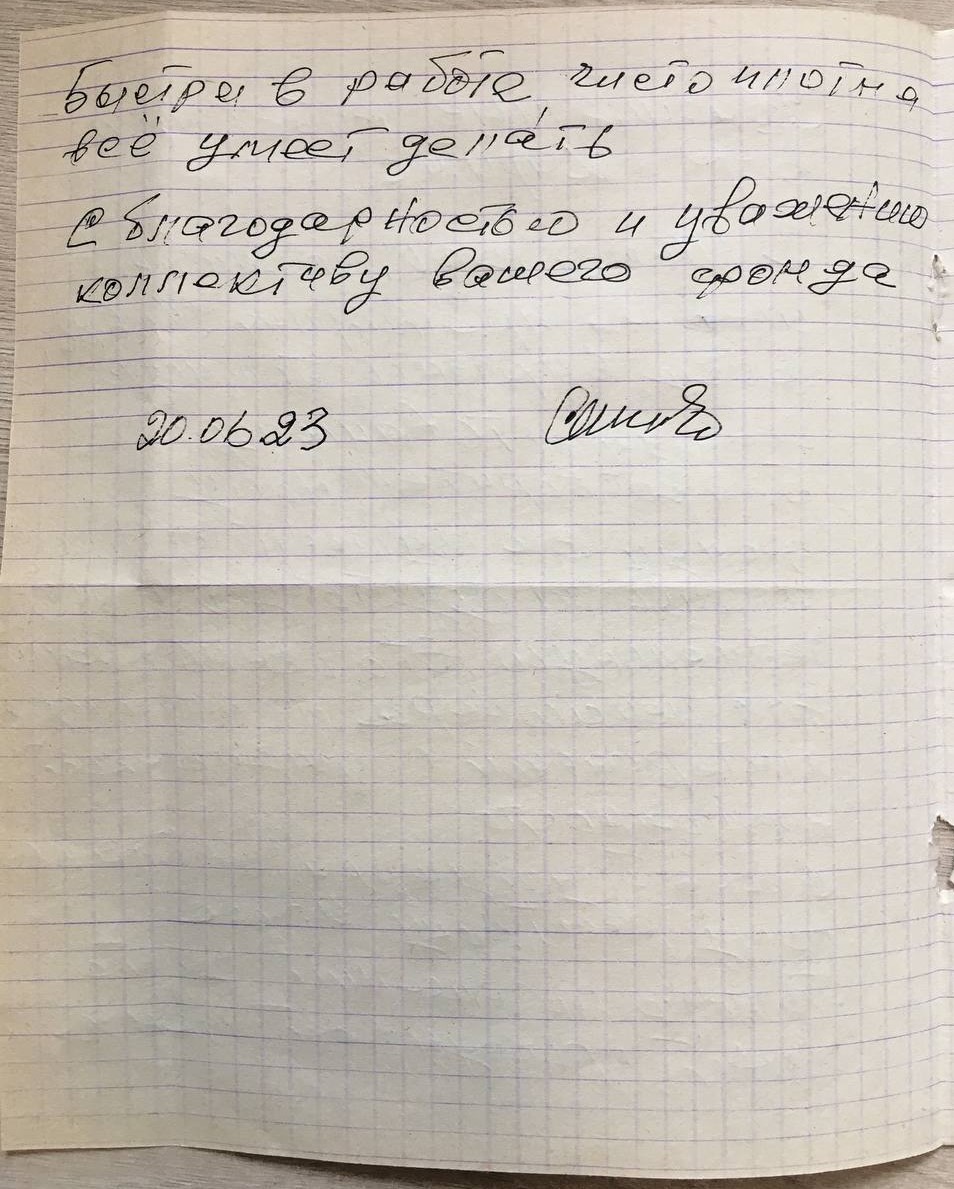 Быстра в работе, чистоплотна
всё умеет делать
С благодарностью и уважению
коллективу вашего фонда
20.06.23